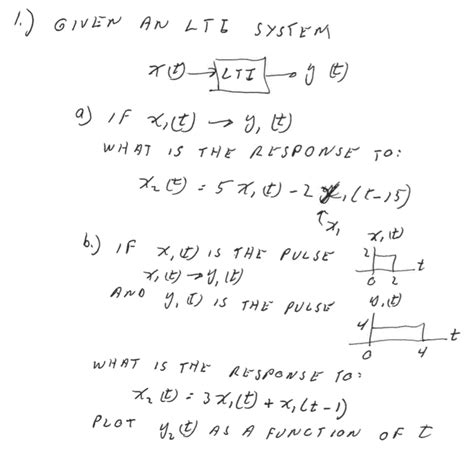 1.) GIVEN AN LTI SYSTEM
x(t) → LTI → y(t)
a) IF x₁(t) → y₁(t)
WHAT IS THE RESPONSE TO:
x₂(t) = 5x₁(t) - 2x₁(t-15)
x₁
b.) IF x₁(t) IS THE PULSE
x₁(t) → y₁(t)
AND y₁(t) IS THE PULSE
x₁(t)
2
t
0 2
y₁(t)
4
t
0 4
WHAT IS THE RESPONSE TO:
x₂(t) = 3x₁(t) + x₁(t-1)
PLOT y₂(t) AS A FUNCTION OF t